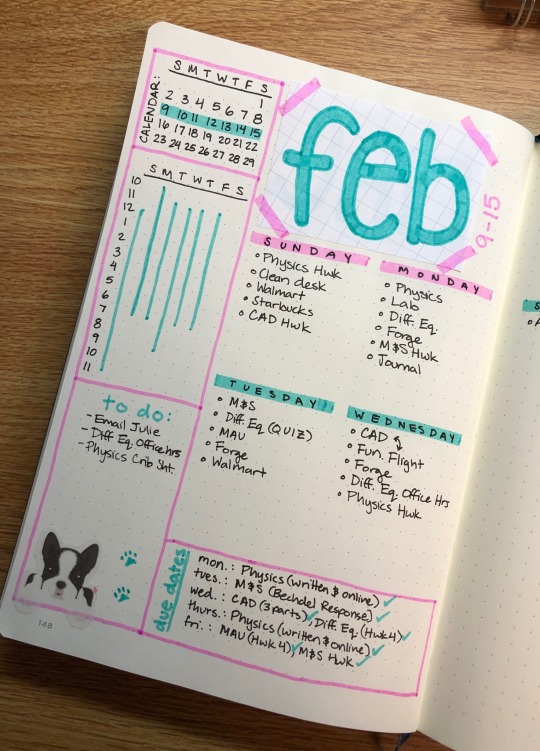 CALENDAR:
S M T W T F S
1
2 3 4 5 6 7 8
9 10 11 12 13 14 15
16 17 18 19 20 21 22
23 24 25 26 27 28 29
S M T W T F S
10
11
12
1
2
3
4
5
6
7
8
9
10
11
to do:
- Email Julie
- Diff Eq. Office hrs
- Physics Crib Sht.
148
feb
9-15
SUNDAY
• Physics Hwk
• Clean desk
• Walmart
• Starbucks
• CAD Hwk
MONDAY
• Physics
• Lab
• Diff. Eq.
• Forge
• M$S Hwk
• Journal
TUESDAY
• M$S
• Diff. Eq (QUIZ)
• MAU
• Forge
• Walmart
WEDNESDAY
• CAD
• Fun. Flight
• Forge
• Diff. Eq. Office Hrs
• Physics Hwk
due dates
mon.: Physics (written $ online) ✓
tues.: M$S (Bechdel Response) ✓
wed.: CAD (3 parts) ✓, Diff Eq. (Hwk 4) ✓
thurs.: Physics (written $ online) ✓
fri.: MAU (Hwk 4) ✓, M$S Hwk ✓